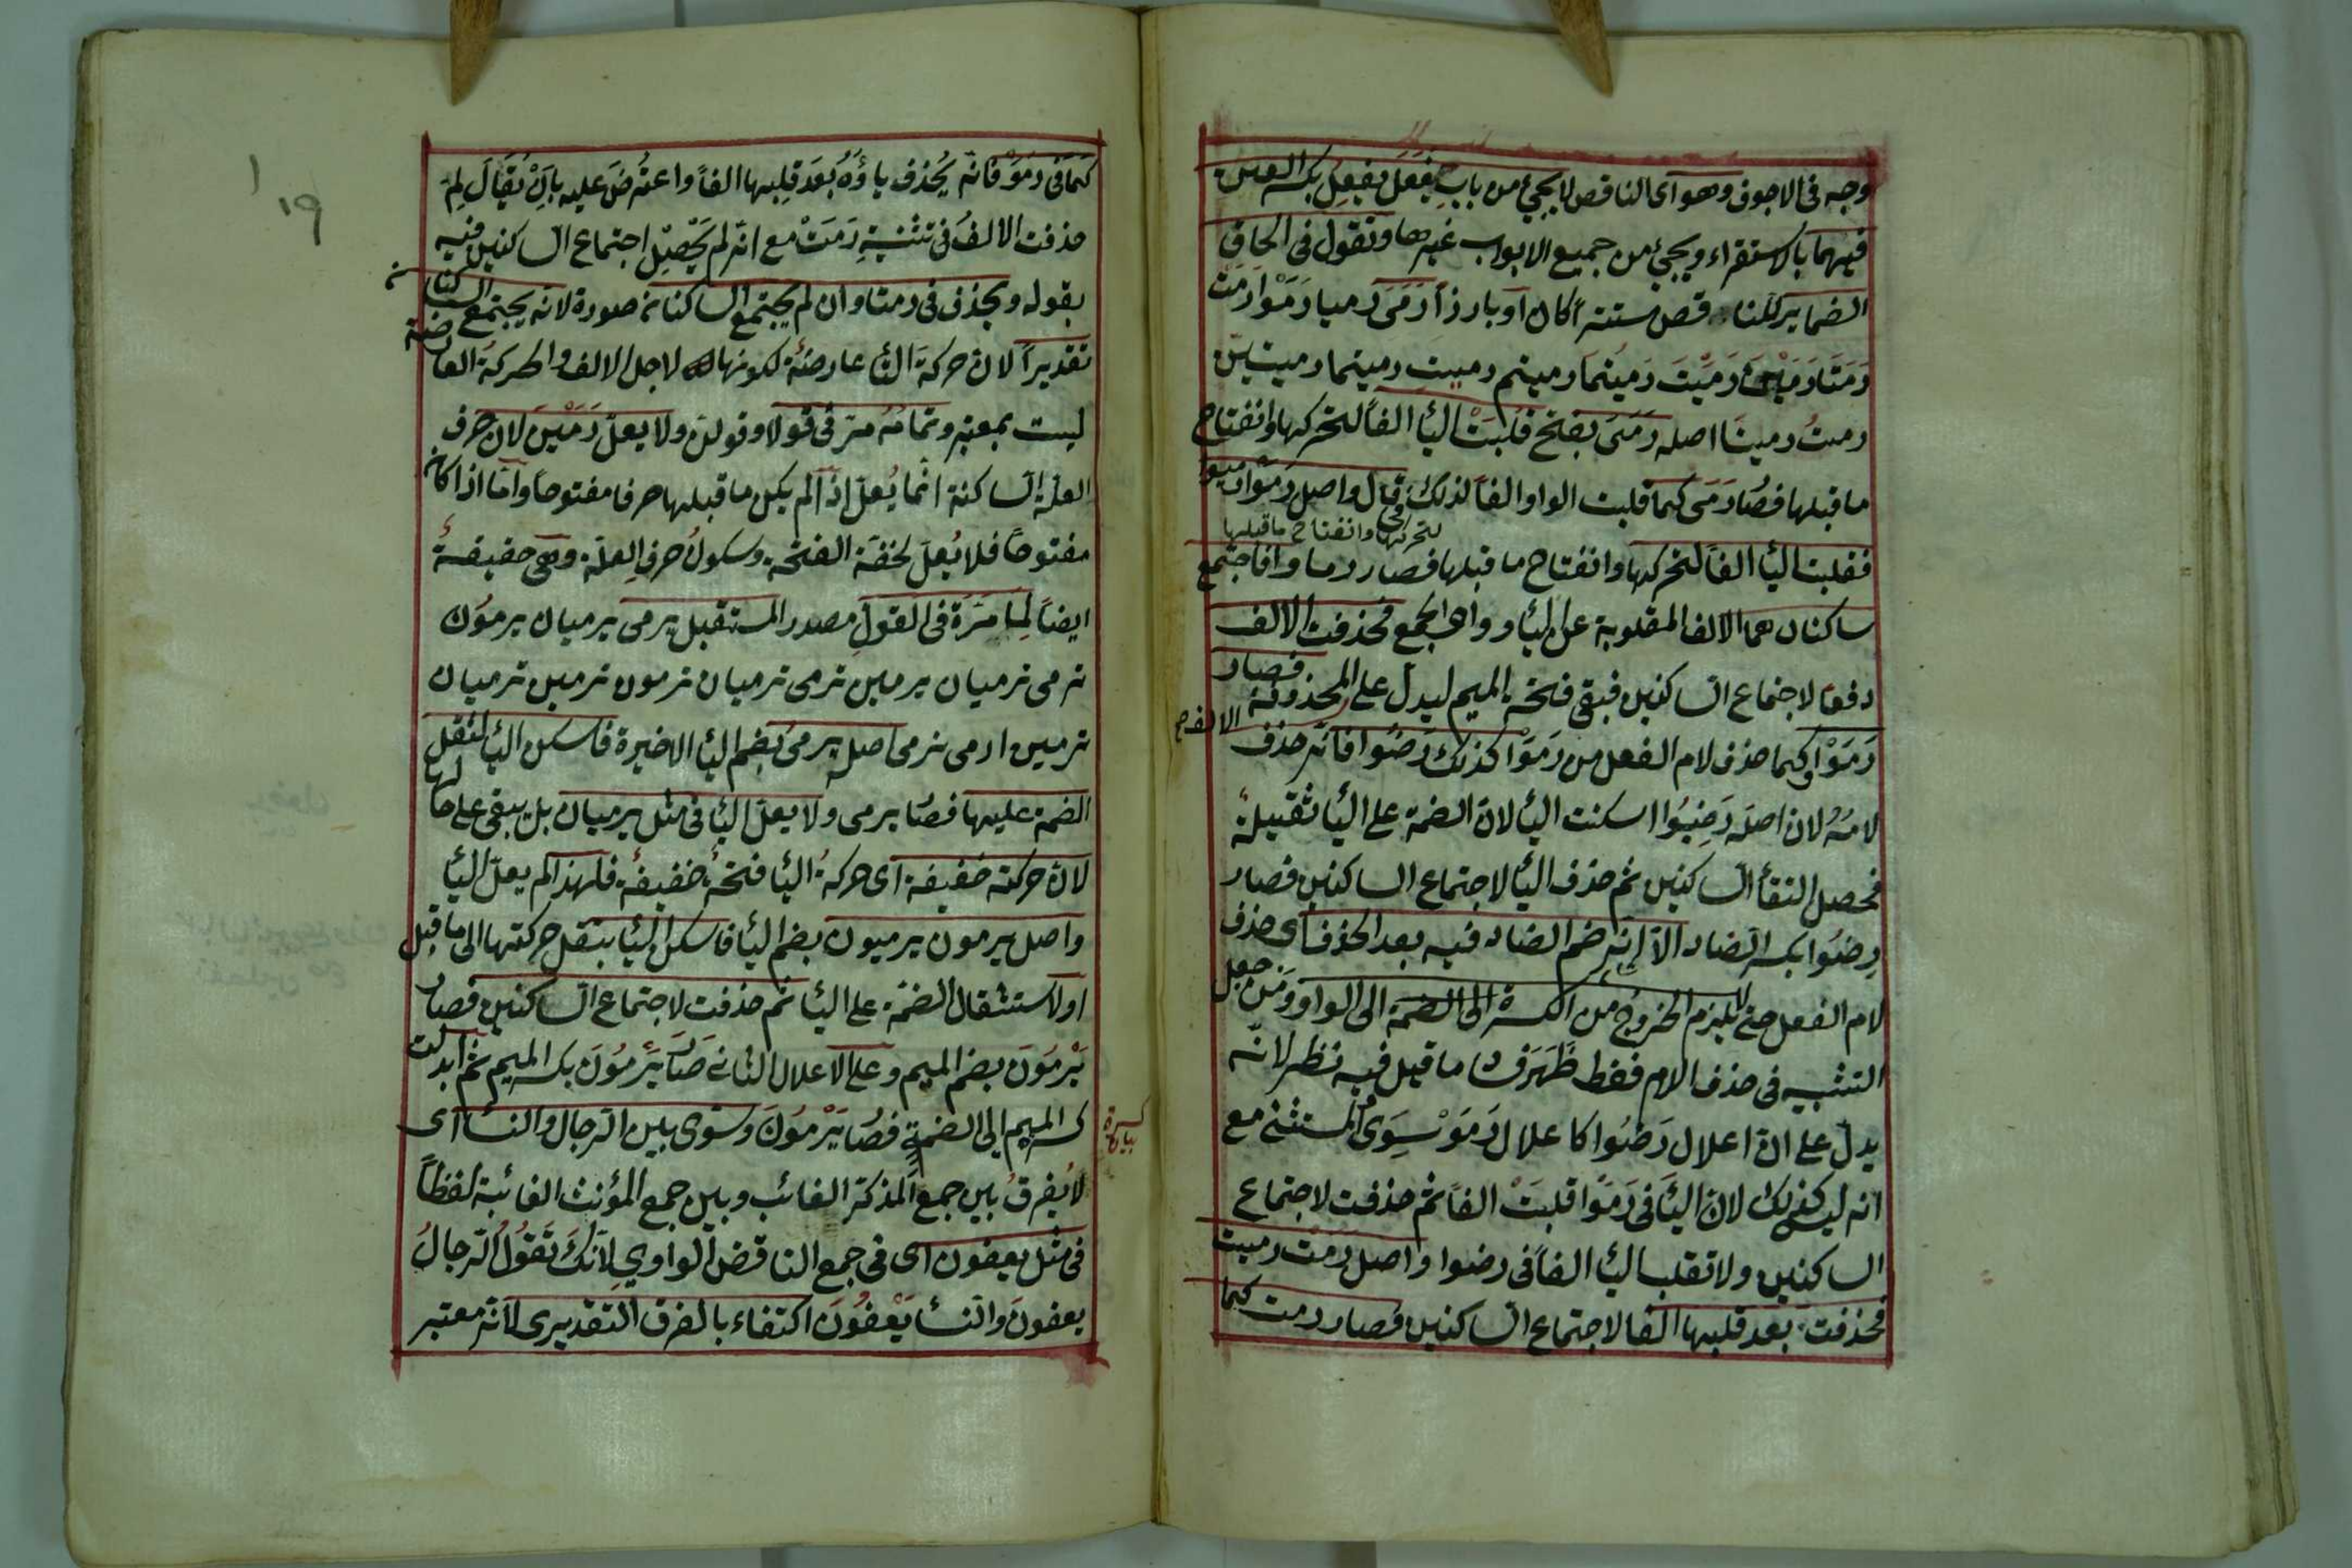 وجه فى الاجوف وهو اى الناقص لا يجئ من باب فعل يفعل بكسر العين
فيهما بالاستقراء ويجئ من جميع الابواب غيرها وتقول فى الحاق
الضماير للناقص مستترا كان او بارزا رَمَى رميا رَمَوْا رَمَتْ
رَمَتَا رَمَيْنَ رَمَيْتَ رَمَيتُمَا رميتم رميتِ رميتما رميتنّ
رميتُ رمينَا اصله رَمَىَ بفتح قلبَتْ اليأ الفاً لتحركها وانفتاح
ما قبلها فصار رَمَى كما قلبت الواو الفاً لذلك فى قال واصل رَمَوْا رميوا
لتحركها وانفتاح ماقبلها
فقلبت اليأ الفاً لتحركها وانفتاح ما قبلها فصار رماوا فاجتمع
ساكنان هما الالف المقلوبة عن اليأ وواو الجمع فحذفت الالف
دفعًا لاجتماع الساكنين فبقى فتحة الميم ليدل على المحذوفة فصار
الالف صح
رَمَوْا وكما حذف لام الفعل من رَمَوْا كذلك رَضُوا فانه حذف
لامُهُ لان اصله رَضِيُوا اسكنت اليأ لانّ الضمة على اليأ ثقيلة
فحصل التقأ الساكنين ثم حذف اليأ لاجتماع الساكنين فصار
رِضُوا بكسر الضاد الّا انه ضم الضاد فيه بعد الحذف اى حذف
لام الفعل حتى لا يلزم الخروج من الكسرة الى الضمة الى الواو ومن جعل
التشبيه فى حذف اللام فقط ظَهَرَ ما قيل فيه نظر لانه
يدلّ على انّ اعلال رَضُوا كاعلال رَمَوْ سِوَى المستثنى مع
انه ليس كذلك لانّ اليأ فى رَمَوْا قلبَتْ الفاً ثم حذفت لاجتماع
الساكنين ولا تقلب اليأ الفاً فى رضوا واصل رَمَتْ رميت
فحذفت بعد قلبها الفا لاجتماع الساكنين فصار رمت كما
١٩
كَمَا فى رَمَوْ فانه يُحذف ياؤُهُ بُعَدَ قلبِها الفاً واعتُرضَ عليه بِاَنْ يُقَالَ لِمَ
حذفت الالفُ فى تثنيةِ رَمَتْ مع انه لم يحصل اجتماع الساكنين فيه
بقوله ويحذف فى رمتا وان لم يجتمع الساكنان صورة لانه يجتمع الساكنان
تقديراً لانّ حركةَ التأ عارضةُ لكونها لاجل الالف والحركةُ العارضة
ليست بمعتبرة وتمامُهُ مرّ فى قولا وقولن ولا يعلّ رَمَيْنَ لان حرف
العلّة الساكنة انما يُعلّ اذا لم يكن ما قبلها حرفا مفتوحاً وامّا اذا كان
مفتوحاً فلا يُعلّ لخفة الفتحة وسكونُ حرفِ العلّة وهى خفيفةُ
ايضاً لِمَا مَرّ فى القولِ مصدر المستقبل يرمى يرميان يرمُون
ترمى ترميان يرمين ترمى ترميان ترمون ترمين ترميان
ترمين ارمى نرمى اصل يرمى يرمىُ بضم اليأ الاخيرة فاسكن اليأ لثقل
الضمة عليها فصَار يرمى ولا يعلّ اليأ فى مثل يرميان بل يبقى على حالها
لانّ حركته خفيفة اى حركةُ اليأ فتحةُ خفيفةُ فلهذا لم يعلّ اليأ
واصل يرمون يرميون بضم اليأ فاسكن اليأ بنقل حركتها الى ما قبل
او لاستثقال الضمّة على اليأ ثم حذفت لاجتماع الساكنين فصار
يَرْمُونَ بضم الميم وعلى الاعلال الثانى صَار يَرمُونَ بكسر الميم ثم ابدلت
كسرة الميم الى الضمة فصَار يَرْمُونَ وسَوى بين الرجال والنسأ اى
لا يُفرقُ بين جمع المذكّر الغائب وبين جمع المؤنث الغائبة لفظاً
فى مثل يعفون اى فى جمع الناقض الواوي لِاَنّكَ تَقُوُلُ الرجالُ
يعفونَ والنسأ يَعْفُوُنَ اكتفاء بالفرق التقديرى لانه معتبر